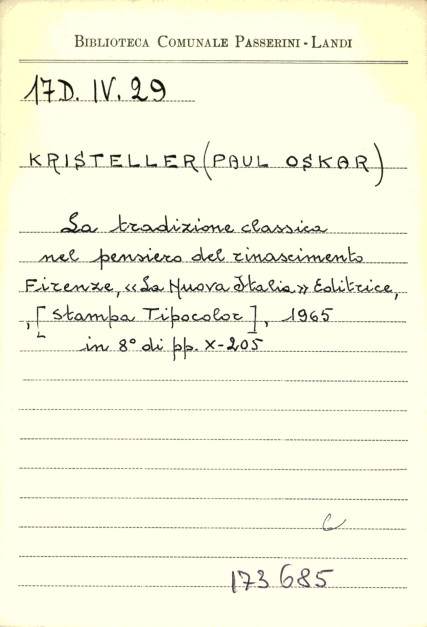 BIBLIOTECA COMUNALE PASSERINI - LANDI
17D. IV. 29
KRISTELLER (PAUL OSKAR)
La tradizione classica
nel pensiero del rinascimento
Firenze, «La Nuova Italia» Editrice,
, [Stampa Tipocolor], 1965
in 8° di pp. X-205
173685